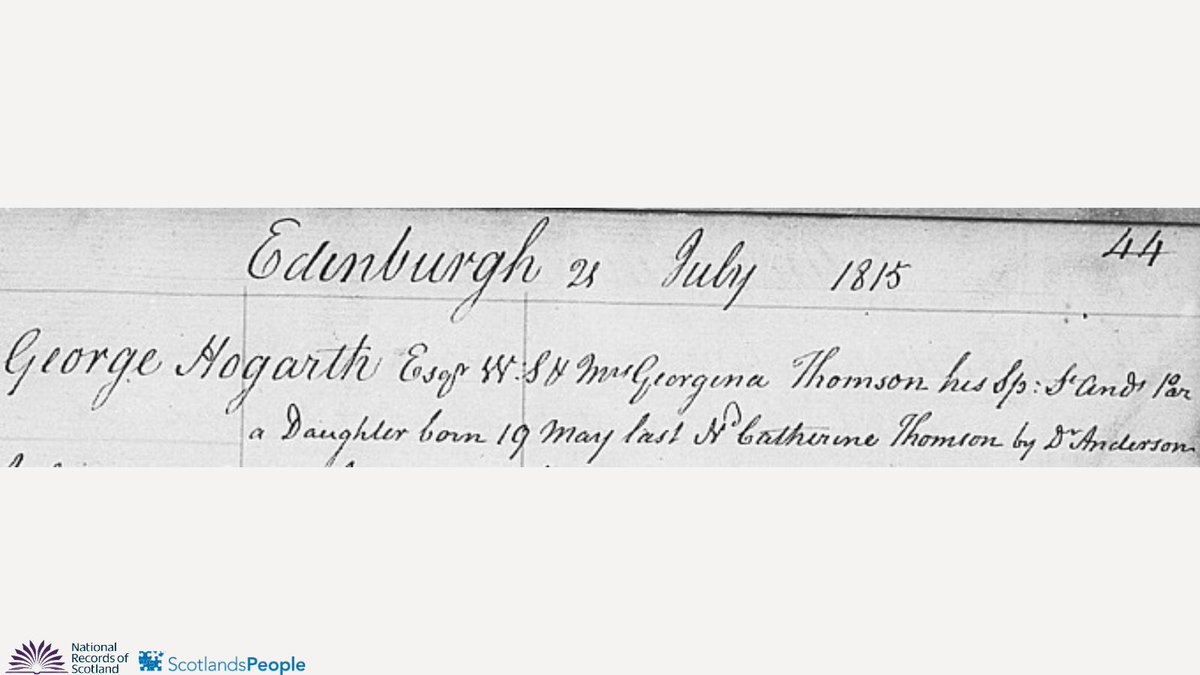 Edinburgh 21 July 1815
44
George Hogarth Esqr W:S & Mrs Georgina Thomson his Sp: St Ands Par
a Daughter born 19 May last Nd Catherine Thomson by Dr Anderson
National
Records of
Scotland
ScotlandsPeople